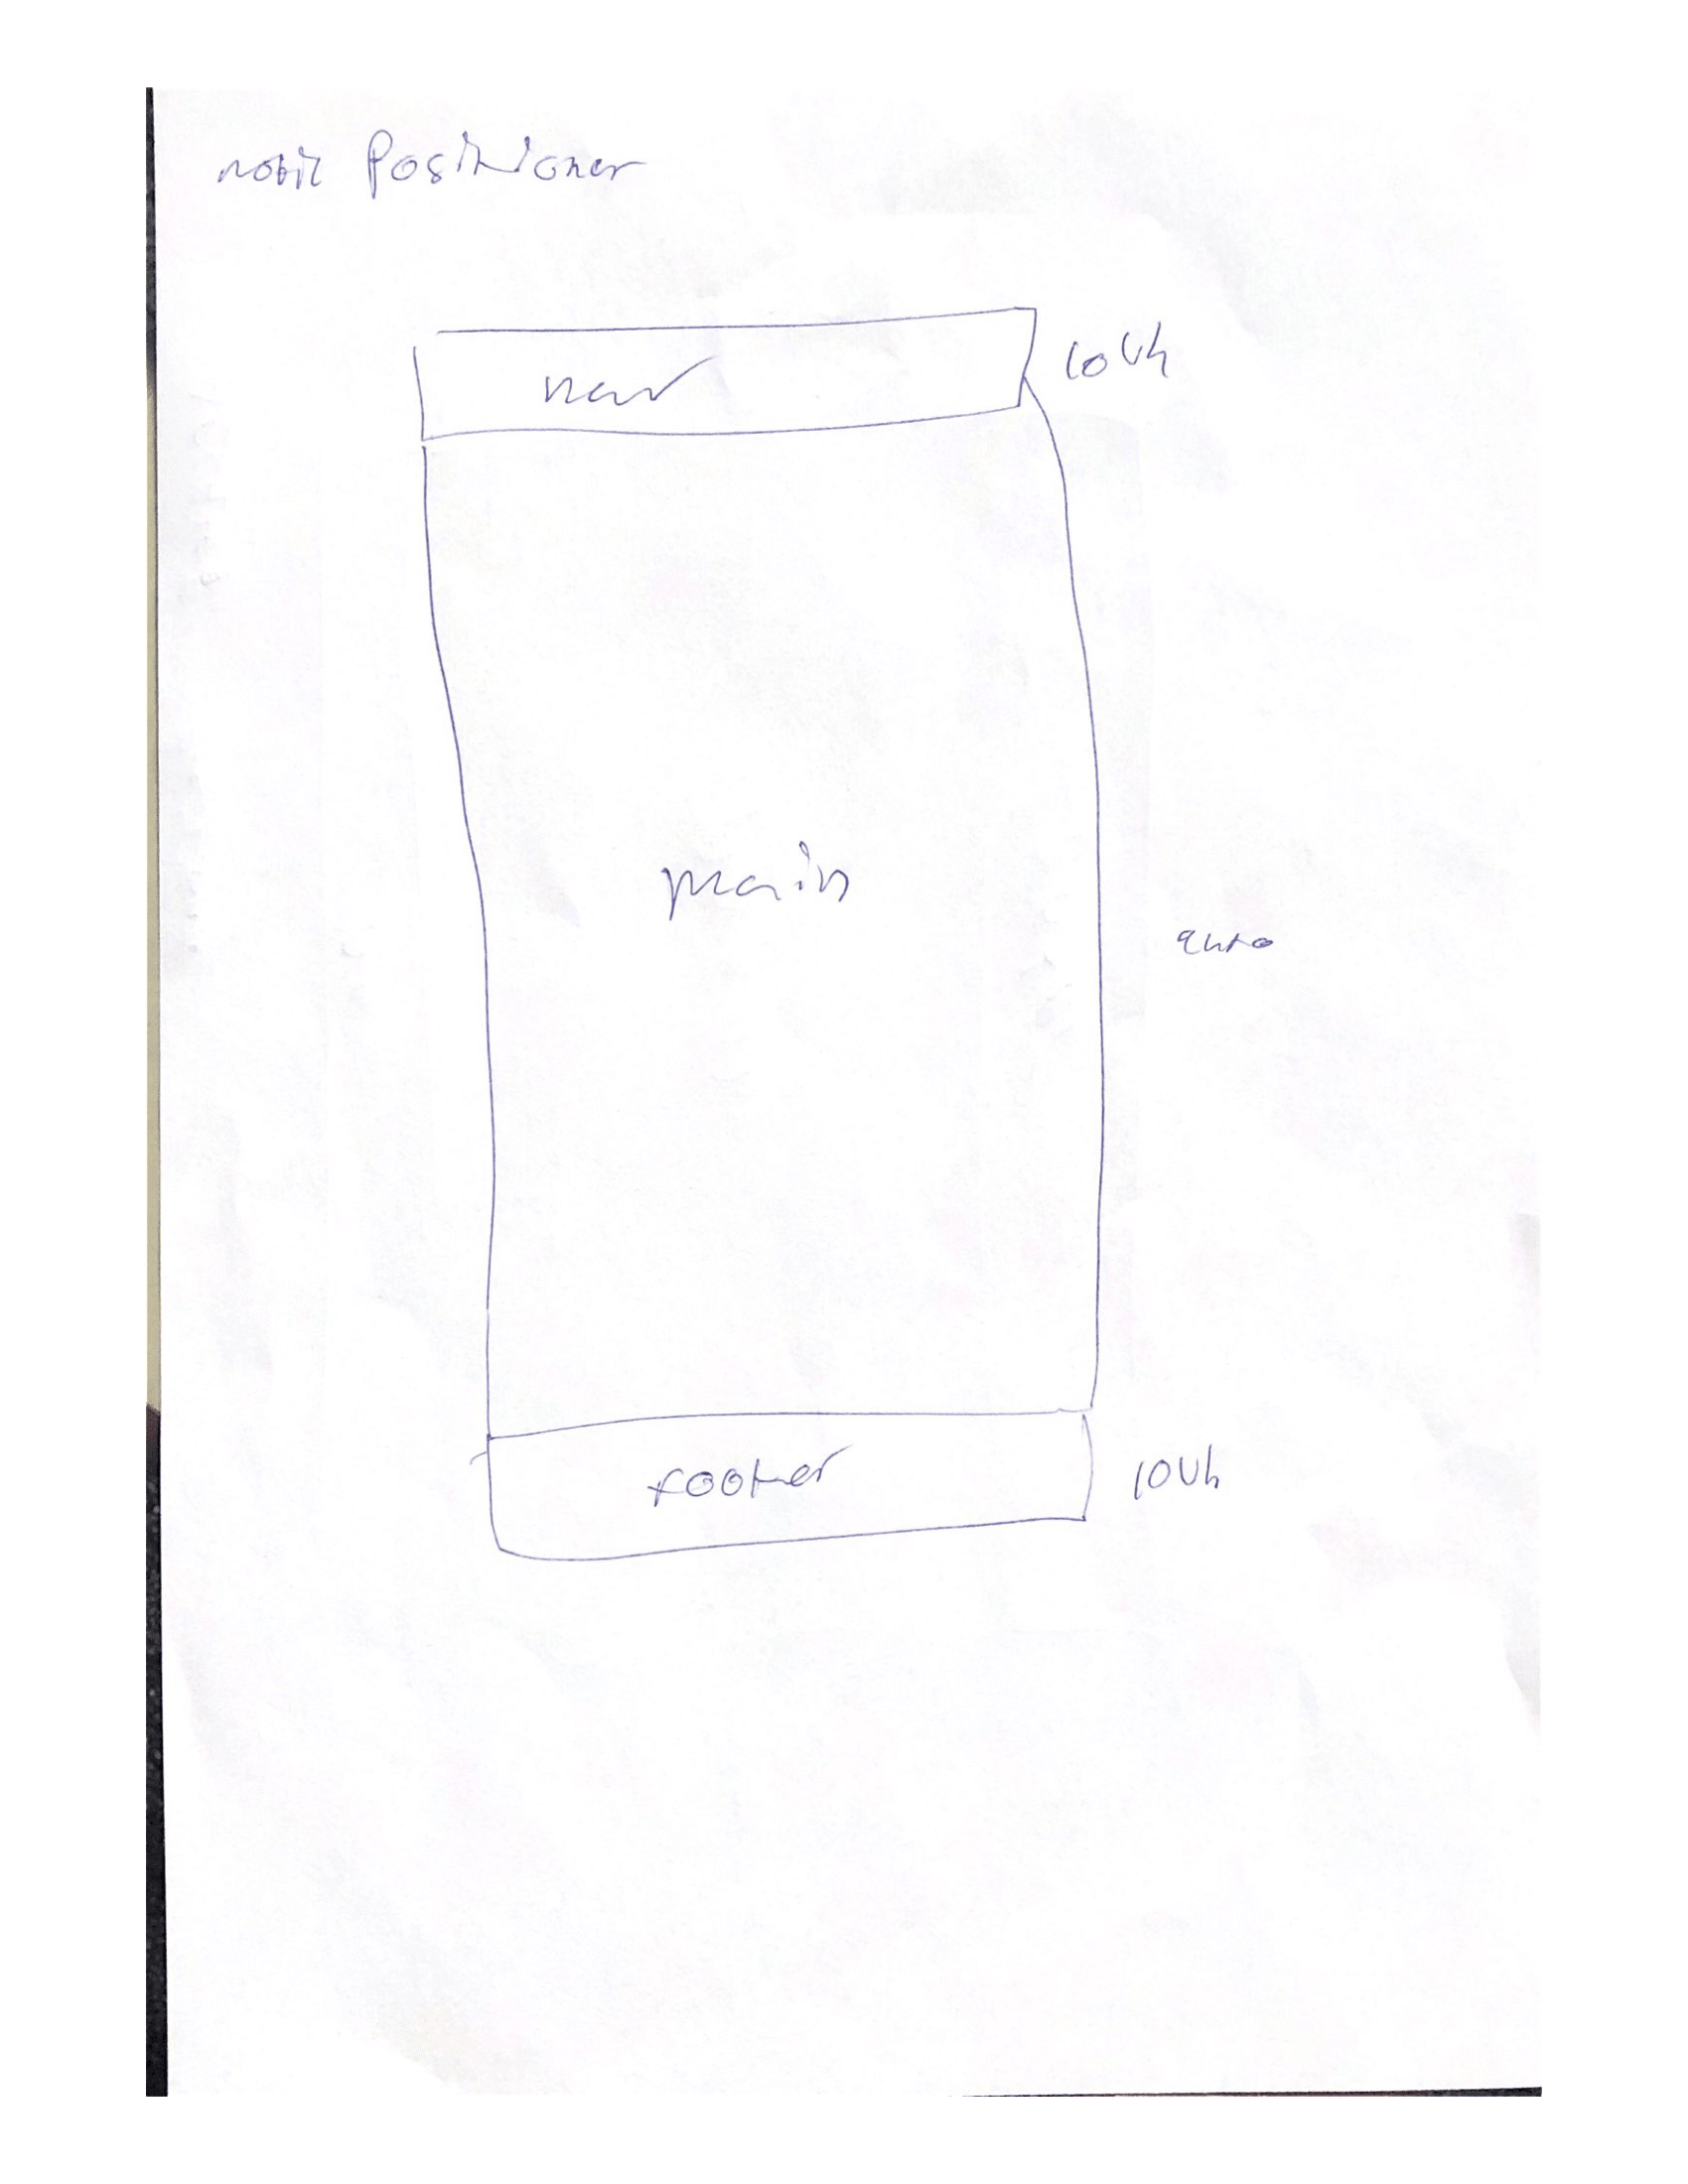 mobil Positioner
nav
10vh
main
auto
footer
10vh